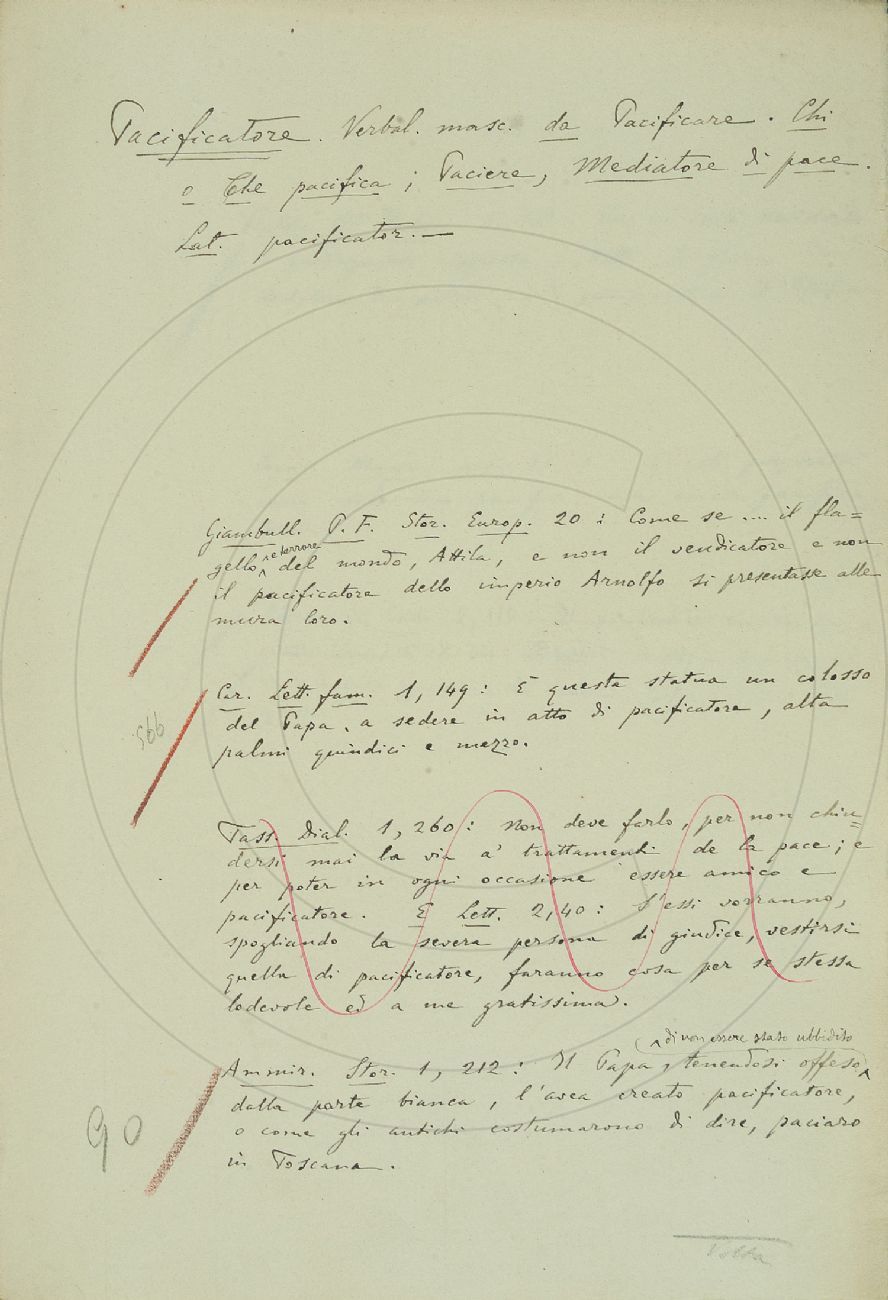 Pacificatore. Verbal. masc. da Pacificare. Chi
o Che pacifica; Paciere, Mediatore di pace.
Lat. pacificator. —
Giambull. P. F. Stor. Europ. 20: Come se .... il fla=
gello e terrore del mondo, Attila, e non il vendicatore e non
il pacificatore dello imperio Arnolfo si presentasse alle
mura loro.
Car. Lett. fam. 1, 149: È questa statua un colosso
del Papa, a sedere in atto di pacificatore, alta
palmi quindici e mezzo.
566
Tass. Dial. 1, 260: Non deve farlo, per non chiu=
dersi mai la via a' trattamenti de la pace; e
per poter in ogni occasione essere amico e
pacificatore. E Lett. 2, 40: S'essi vorranno,
spogliando la severa persona di giudice, vestirsi
quella di pacificatore, faranno cosa per se stessa
lodevole ed a me gratissima.
di non essere stato ubbidito
Ammir. Stor. 1, 212: Il Papa, tenendosi offeso
dalla parte bianca, l'avea creato pacificatore,
o come gli antichi costumarono di dire, paciaro
in Toscana.
90
Volta